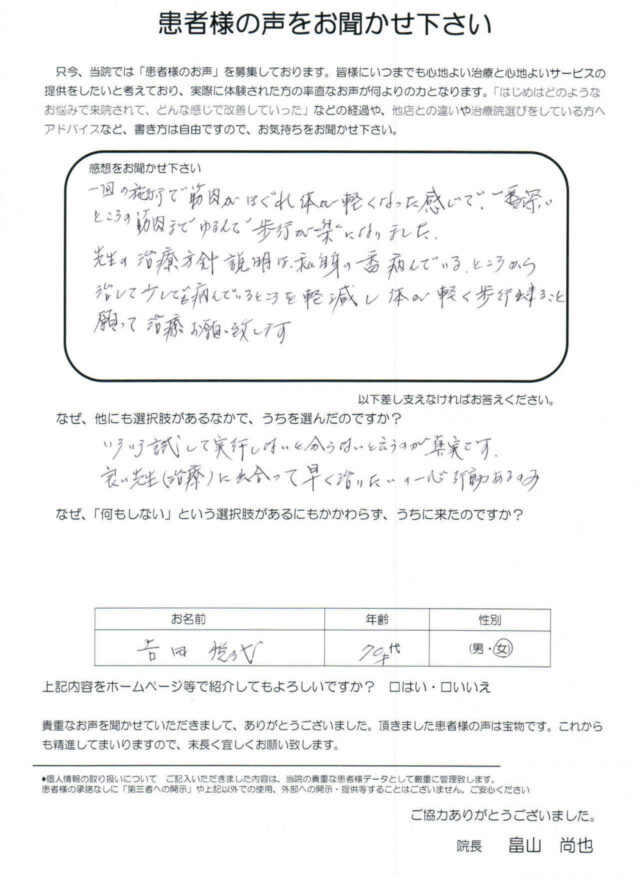 患者様の声をお聞かせ下さい
只今、当院では「患者様のお声」を募集しております。皆様にいつまでも心地よい治療と心地よいサービスの
提供をしたいと考えており、実際に体験された方の率直なお声が何よりの力となります。「はじめはどのような
お悩みで来院されて、どんな感じで改善していった」などの経過や、他店との違いや治療院選びをしている方へ
アドバイスなど、書き方は自由ですので、お気持ちをお聞かせ下さい。
感想をお聞かせ下さい
一回の施術で筋肉がほぐれ体が軽くなった感じで、一番深い
ところの筋肉までゆるんで歩行が楽になりました。
先生の治療方針説明は、私自身の一番病んでいる、ところから
治して少しでも病んでいるところを軽減し体が軽く歩行出来ること
願って治療お願い致します
以下差し支えなければお答えください。
なぜ、他にも選択肢があるなかで、うちを選んだのですか？
いろいろ試して実行しないと分らないと云うのが真実です。
良い先生(治療)に出合って早く治りたいの一心行動あるのみ
なぜ、「何もしない」という選択肢があるにもかかわらず、うちに来たのですか？
お名前 年齢 性別
吉田 70才代 (男・女)
上記内容をホームページ等で紹介してもよろしいですか？ □はい・□いいえ
貴重なお声を聞かせていただきまして、ありがとうございました。頂きました患者様の声は宝物です。これから
も精進してまいりますので、末長く宜しくお願い致します。
♦個人情報の取り扱いについて ご記入いただきました内容は、当院の貴重な患者様データとして厳重に管理致します。
患者様の承諾なしに「第三者への開示」や上記以外での使用、外部への開示・提供等することはございません。ご安心ください
ご協力ありがとうございました。
院長 畠山 尚也